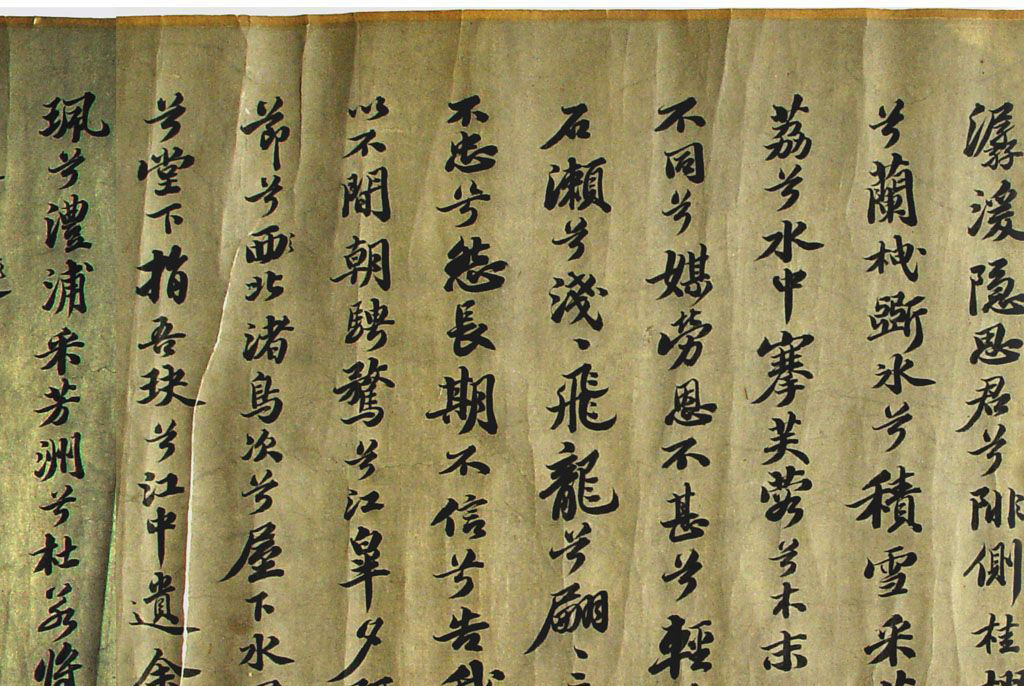 潺湲隐思君兮陫側桂
兮蘭枻斲冰兮積雪采
荔兮水中搴芙蓉兮木末
不同兮媒勞恩不甚兮輕
石瀨兮淺〻飛龍兮翩〻
不忠兮怨長期不信兮告我
以不閒朝騁騖兮江皋夕
節兮西北渚鳥次兮屋下水
兮堂下捐吾玦兮江中遺余
珮兮澧浦采芳洲兮杜若將